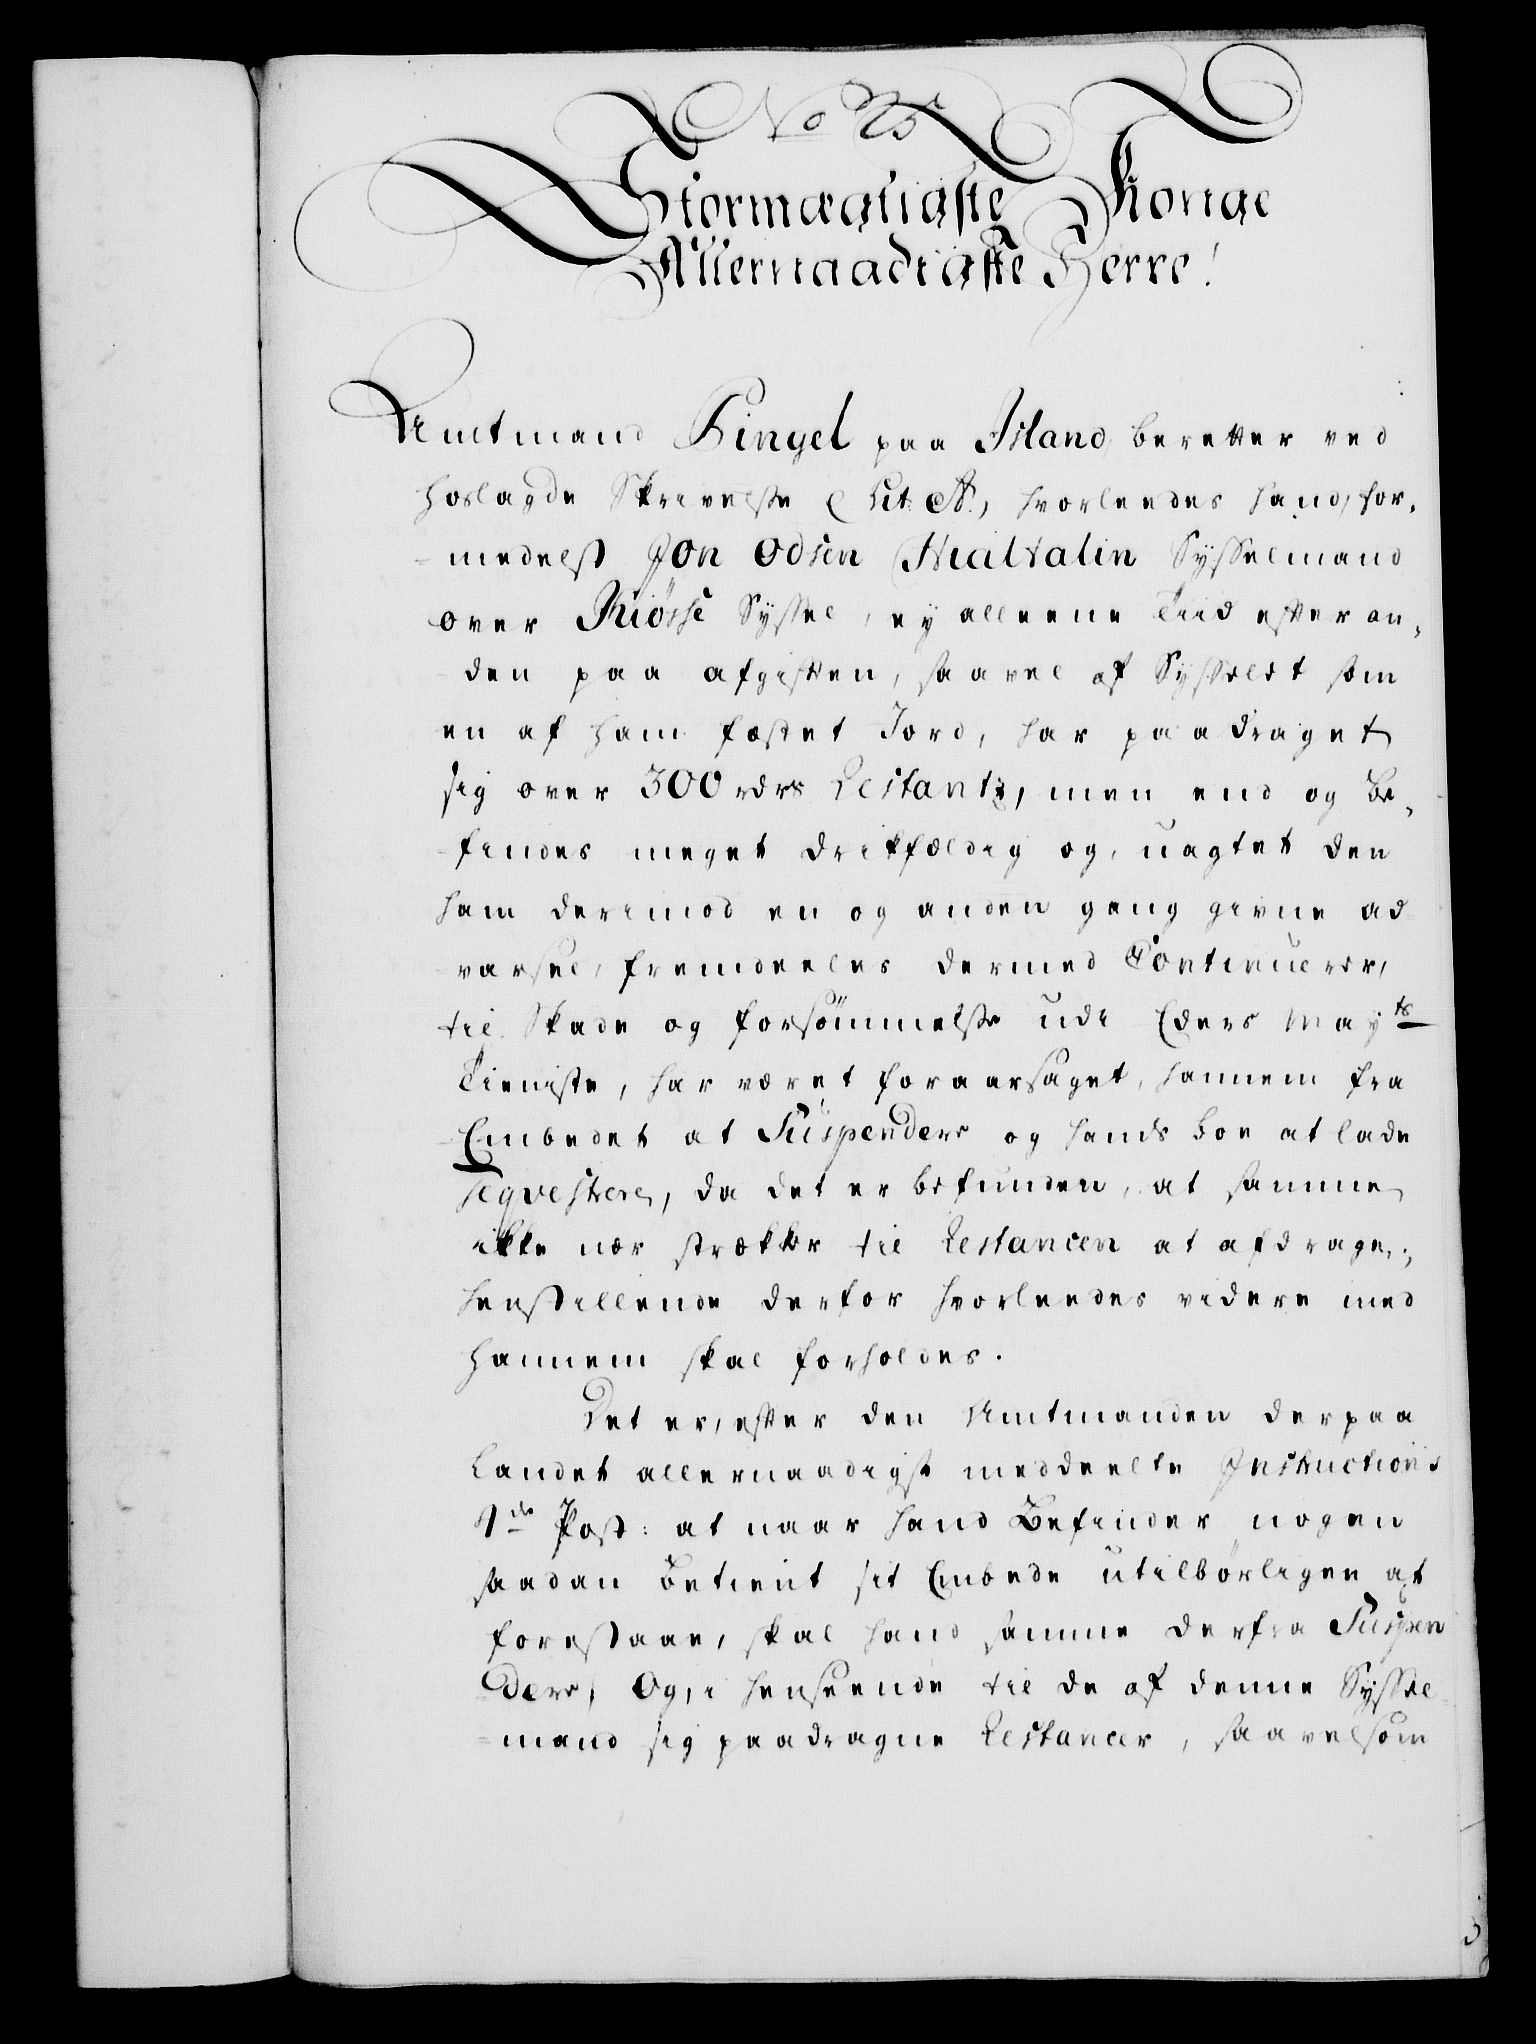 No 25
Stormægtigste Konge
Allernaadigste Herre!
Amtmand Pingel paa Island, beretter ved
hoslagde Skrivelse Lit: A:, hvorleedes hand, for-
-medelst Jon Odsen Hialtalin Sysselmand
over Kiøsse Syssel, ey alleene Tiid efter an-
den paa afgiften, saavel af Sysselet som
en af ham fæstet Jord, har paadraget
sig over 300 rdrs Restantz, men end og be-
-findes meget drikfældig og, uagtet den
ham derimod en og anden gang givne ad
varsel, fremdeeles dermed Continuerer,
til Skade og forsømmelse udi Eders Mayts
Tieniste, har været foraarsaget, hannem fra
Embedet at Suspendere og hands boe at lade
seqvestrere, da det er befunden, at samme
ikke nær strækker til Restancen at afdrage;
henstillende derfor hvorleedes videre med
hannem skal forholdes.
Det er, efter den Amtmanden der paa
Landet allernaadigst meddeelte Instructions
Post: at naar hand befinder nogen
saadan betient sit Embede utilbørligen at
forestaae, skal hand samme derfra Suspen
dere, Og, i henseende til de af denne Syssel-
-mand sig paadragne Restancer, saavelsom